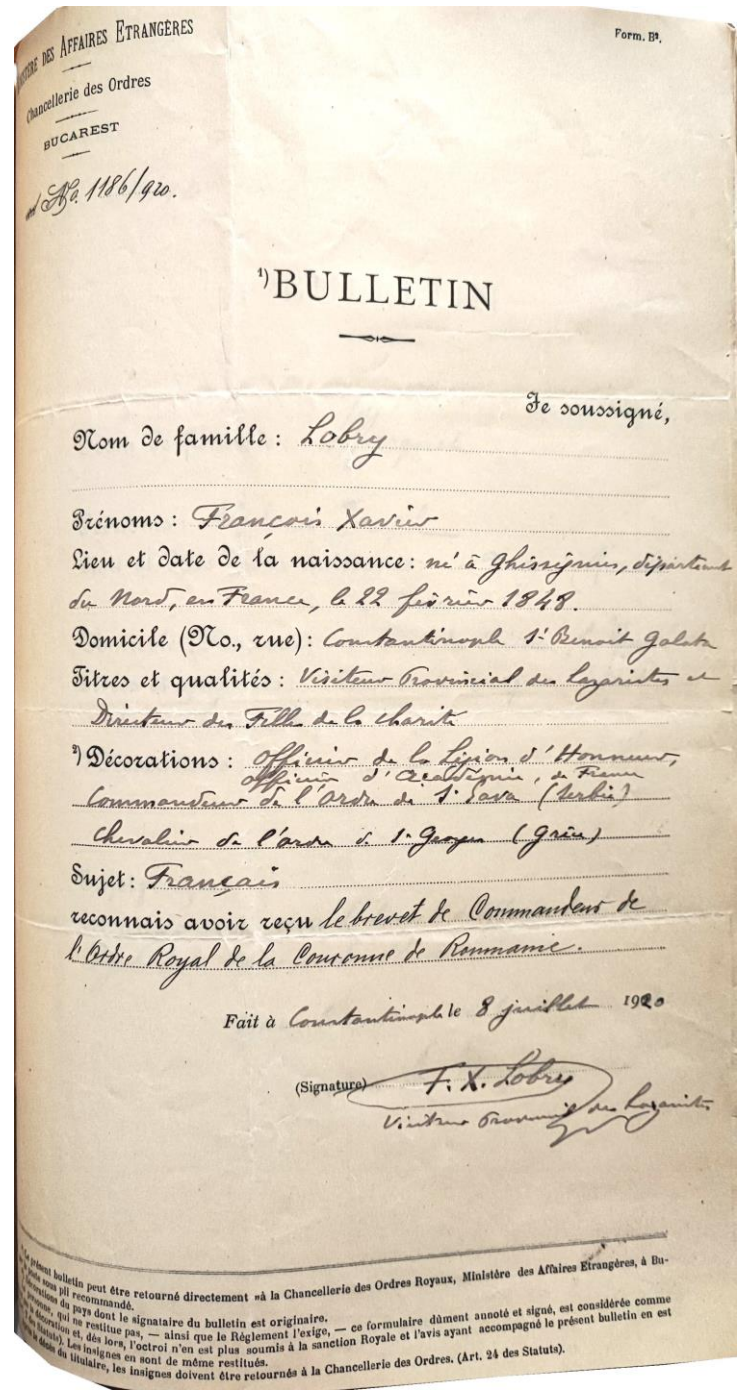 MINISTÈRE DES AFFAIRES ETRANGÈRES
Form. B⁹.
Chancellerie des Ordres
BUCAREST
ad No. 1186/920.
¹) BULLETIN
Je soussigné,
Nom de famille : Lobry
Prénoms : François Xavier
Lieu et date de la naissance : né à Ghissignies, département
du Nord, en France, le 22 février 1848.
Domicile (No., rue) : Constantinople St Benoit Galata
Titres et qualités : Visiteur Provincial des Lazaristes et
Directeur des Filles de la charité
²) Décorations : Officier de la Légion d'Honneur,
Officier d'Académie, de France
Commandeur de l'Ordre de St Sava (Serbie)
Chevalier de l'ordre de St Georges (Grèce)
Sujet : Français
reconnais avoir reçu le brevet de Commandeur de
l'Ordre Royal de la Couronne de Roumanie.
Fait à Constantinople le 8 juillet 1920
(Signature) F. X. Lobry
Visiteur Provincial des Lazaristes
présent bulletin peut être retourné directement »à la Chancellerie des Ordres Royaux, Ministère des Affaires Etrangères, à Bu-
poste sous pli recommandé.
décorations du pays dont le signataire du bulletin est originaire.
personne, qui ne restitue pas, — ainsi que le Règlement l'exige, — ce formulaire dûment annoté et signé, est considérée comme
décoration et, dès lors, l'octroi n'en est plus soumis à la sanction Royale et l'avis ayant accompagné le présent bulletin en est
des Statuts). Les insignes en sont de même restitués.
le décès du titulaire, les insignes doivent être retournés à la Chancellerie des Ordres. (Art. 24 des Statuts).